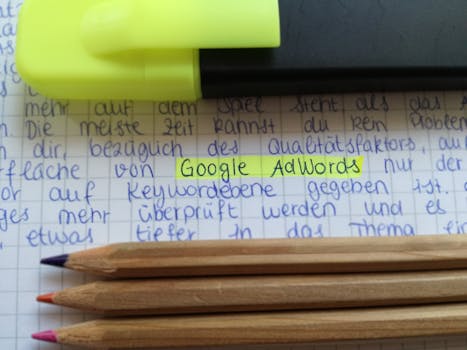 mehr auf dem Spiel steht als das
Die meiste Zeit kannst du kein Problem
dir, bezüglich des Qualitätsfaktors, auf
von Google AdWords nur der
auf Keywordebene gegeben ist.
mehr überprüft werden und es
etwas tiefer in das Thema ein